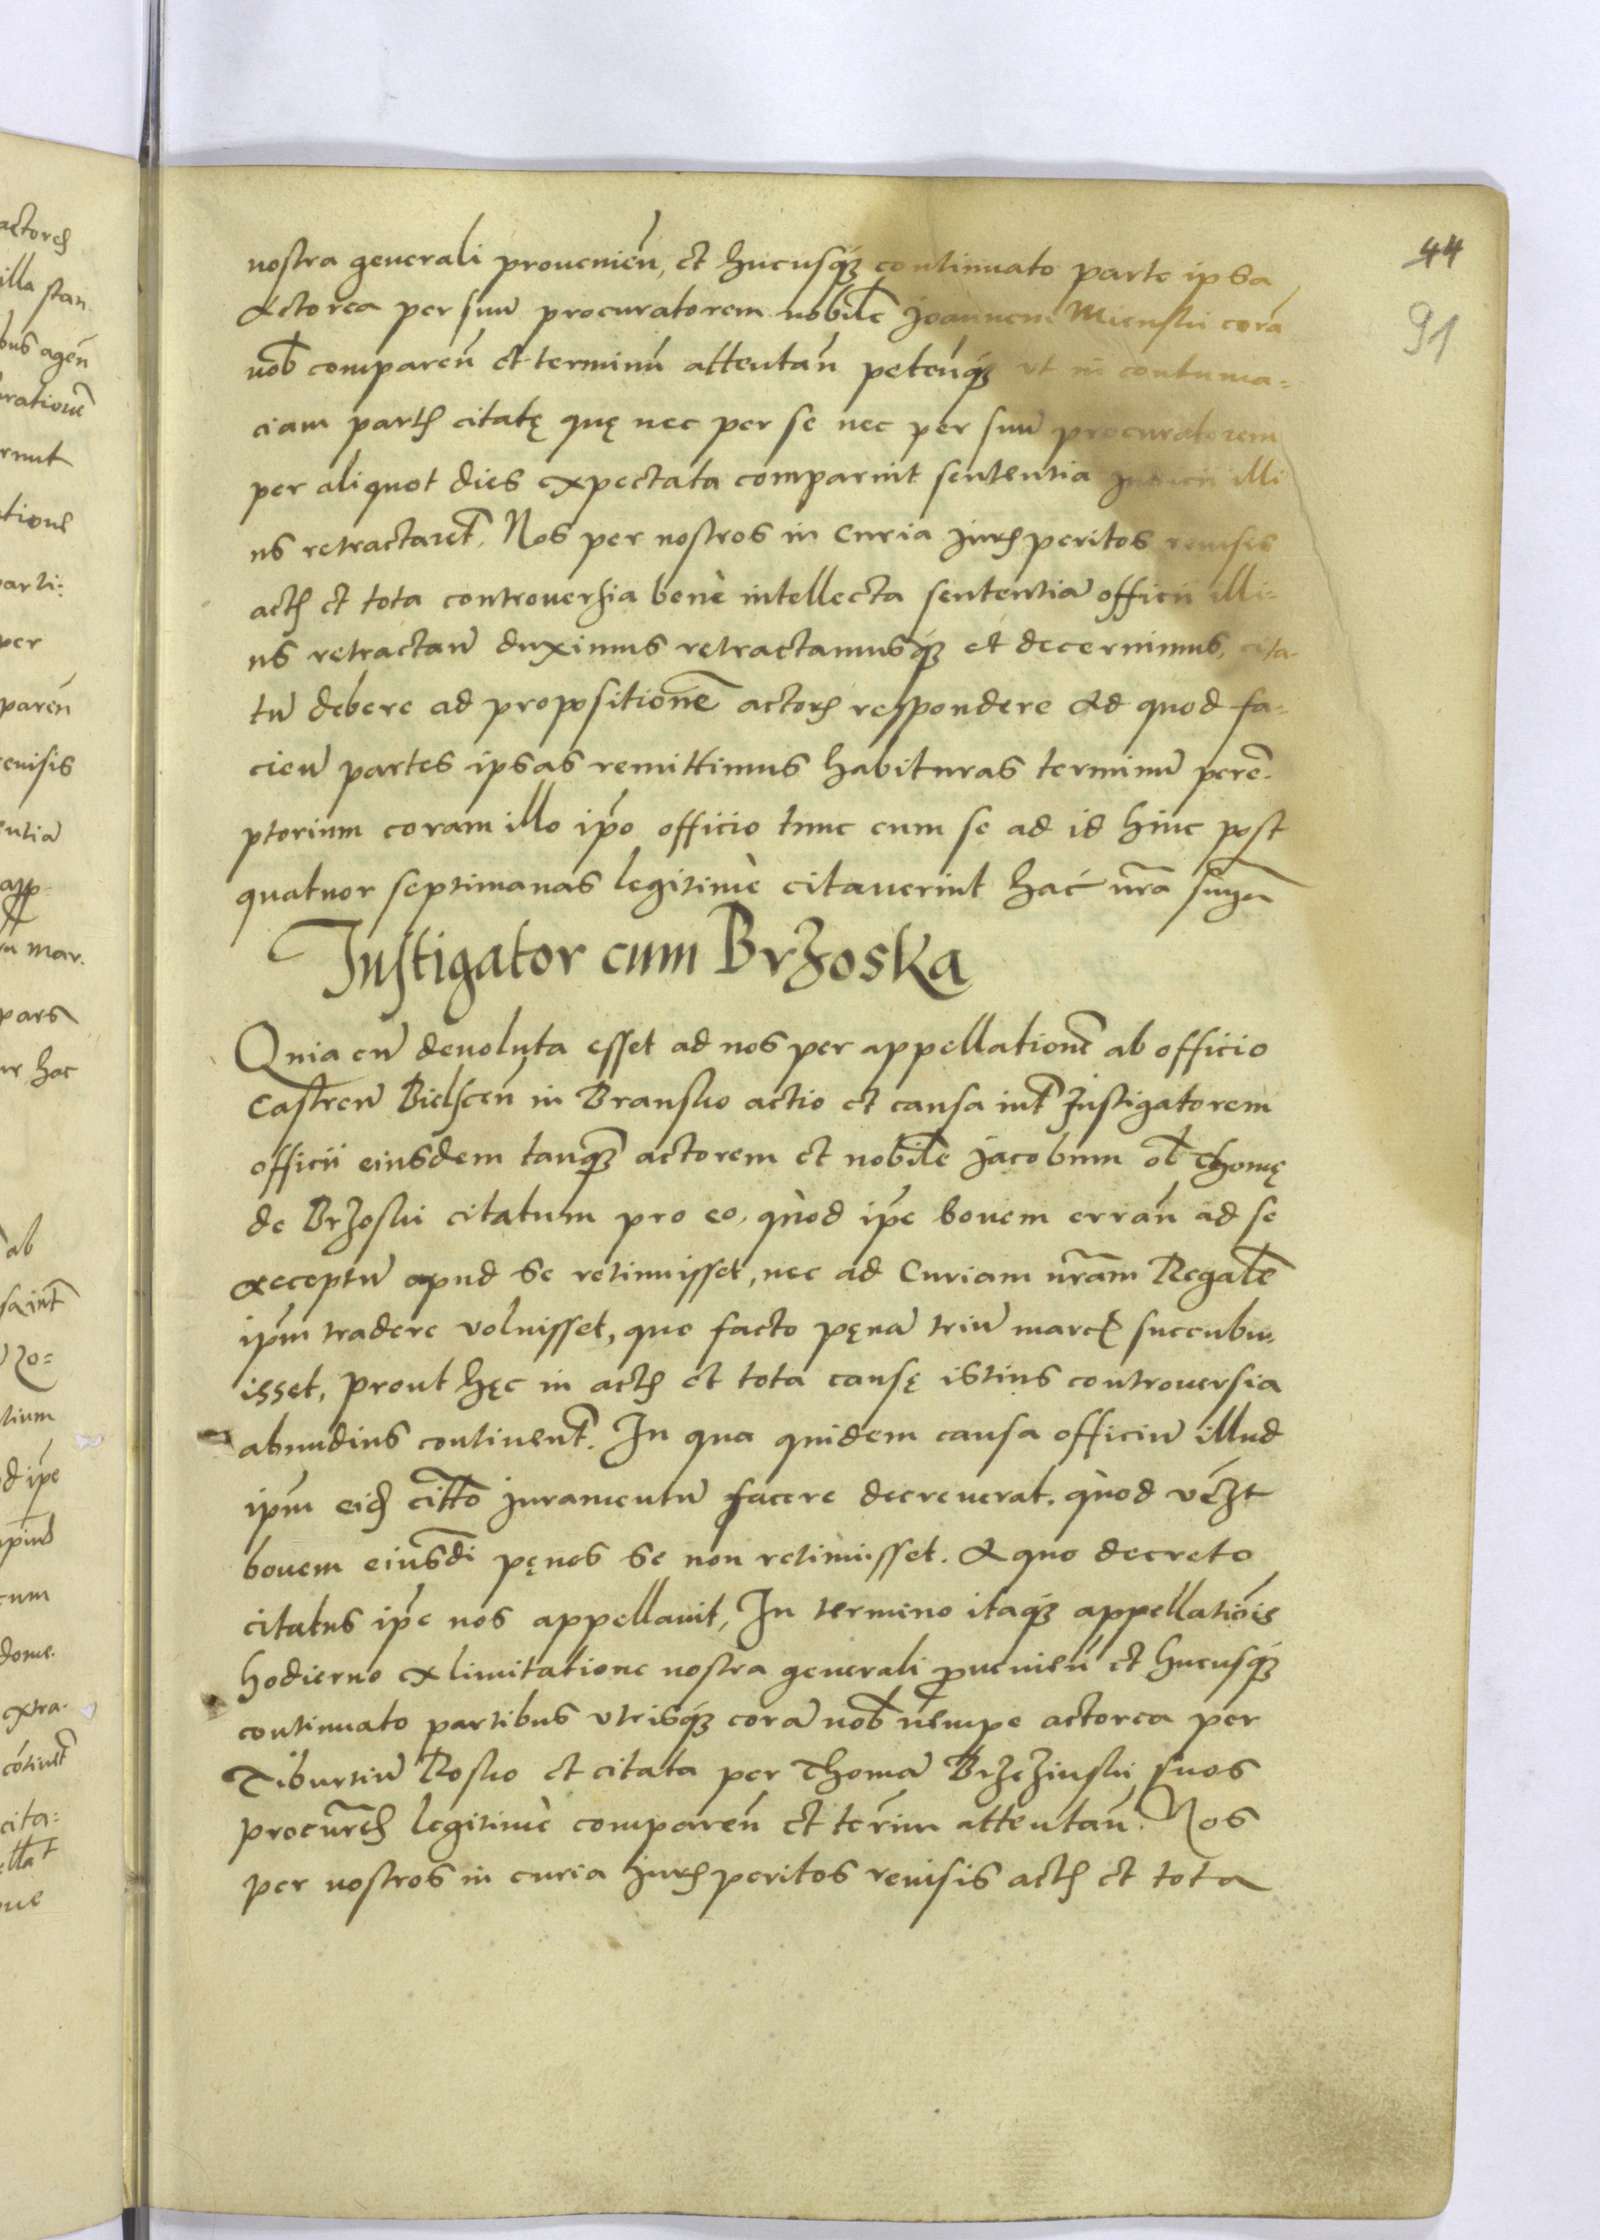 44
91
nostra generali prouenień, et hucusq́ꝫ continuato parte ipsa
Actorea per suu̅ procuratorem nobile̅ Joannem Mienski corã
nob̅ compareń et terminũ attentań petenq́ꝫ vt in contuma=
ciam partꝭ citatę quę nec per se nec per suu̅ procuratorem
per aliquot dies expectata comparuit sententia Judicii illi
us retractaret᷑. Nos per nostros in Curia Jurꝭperitos reuisis
actꝭ et tota controuersia benè intellecta sententia̅ officii illi=
us retractan̅ duximus retractamusq́ꝫ et decernimus, cita-
tu̅ debere ad propositione̅ actorꝭ respondere Ad quod fa-
cien̅ partes ipsas remittimus habituras terminu̅ pere̅-
ptorium coram illo ip̅o officio tunc cum se ad id hinc post
quatuor septimanas legitimè citauerint hac nr̅a
Instigator cum Brzoska
Quia cu̅ deuoluta esset ad nos per appellatione̅ ab officio
Castren̅ Bielsceń in Bransko actio et causa int᷑ Instigatorem
officii eiusdem tanqꝫ̅ actorem et nobile̅ Jacobum ol̅ Thomę
de Brzoski citatum pro eo, quòd ip̅e bouem errań ad se
acceptu̅ apud se retinuisset, nec ad Curiam nr̅am Regale̅
ip̅m tradere voluisset, quo facto pęna̅ triu̅ marcꝭ succubu-
isset, prout hęc in actꝭ et tota causę istius controuersia
abundius continent᷑. In qua quidem causa officiu̅ illud
ip̅m eidꝭ citt̅o juramentu̅ facere decreuerat, quòd
bouem eiusd̅i pęnes se non retinuisset. A quo decreto
citatus ip̅e nos appellauit, In termino itaq́ꝫ appellatio̅is
hodierno ex limitatione nostra generali ꝓuenień et hucusq́ꝫ
continuato partibus vtrisq́ꝫ cora̅ nob̅ nempe actorea per
Tiburtiu̅ Rosko et citata per Thoma̅ Brzezinski suos
procur̅es legitimè compareń et ter̅im attentań. Nos
per nostros in curia Jurꝭperitos reuisis actꝭ et tota